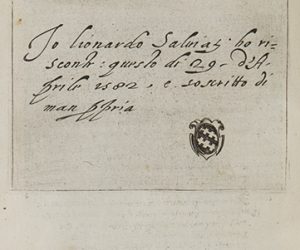 Io lionardo Salviati ho ri⸗
scontr: questo dì 29⸗ d'A⸗
prile 1582, e soscritto di
man ppria